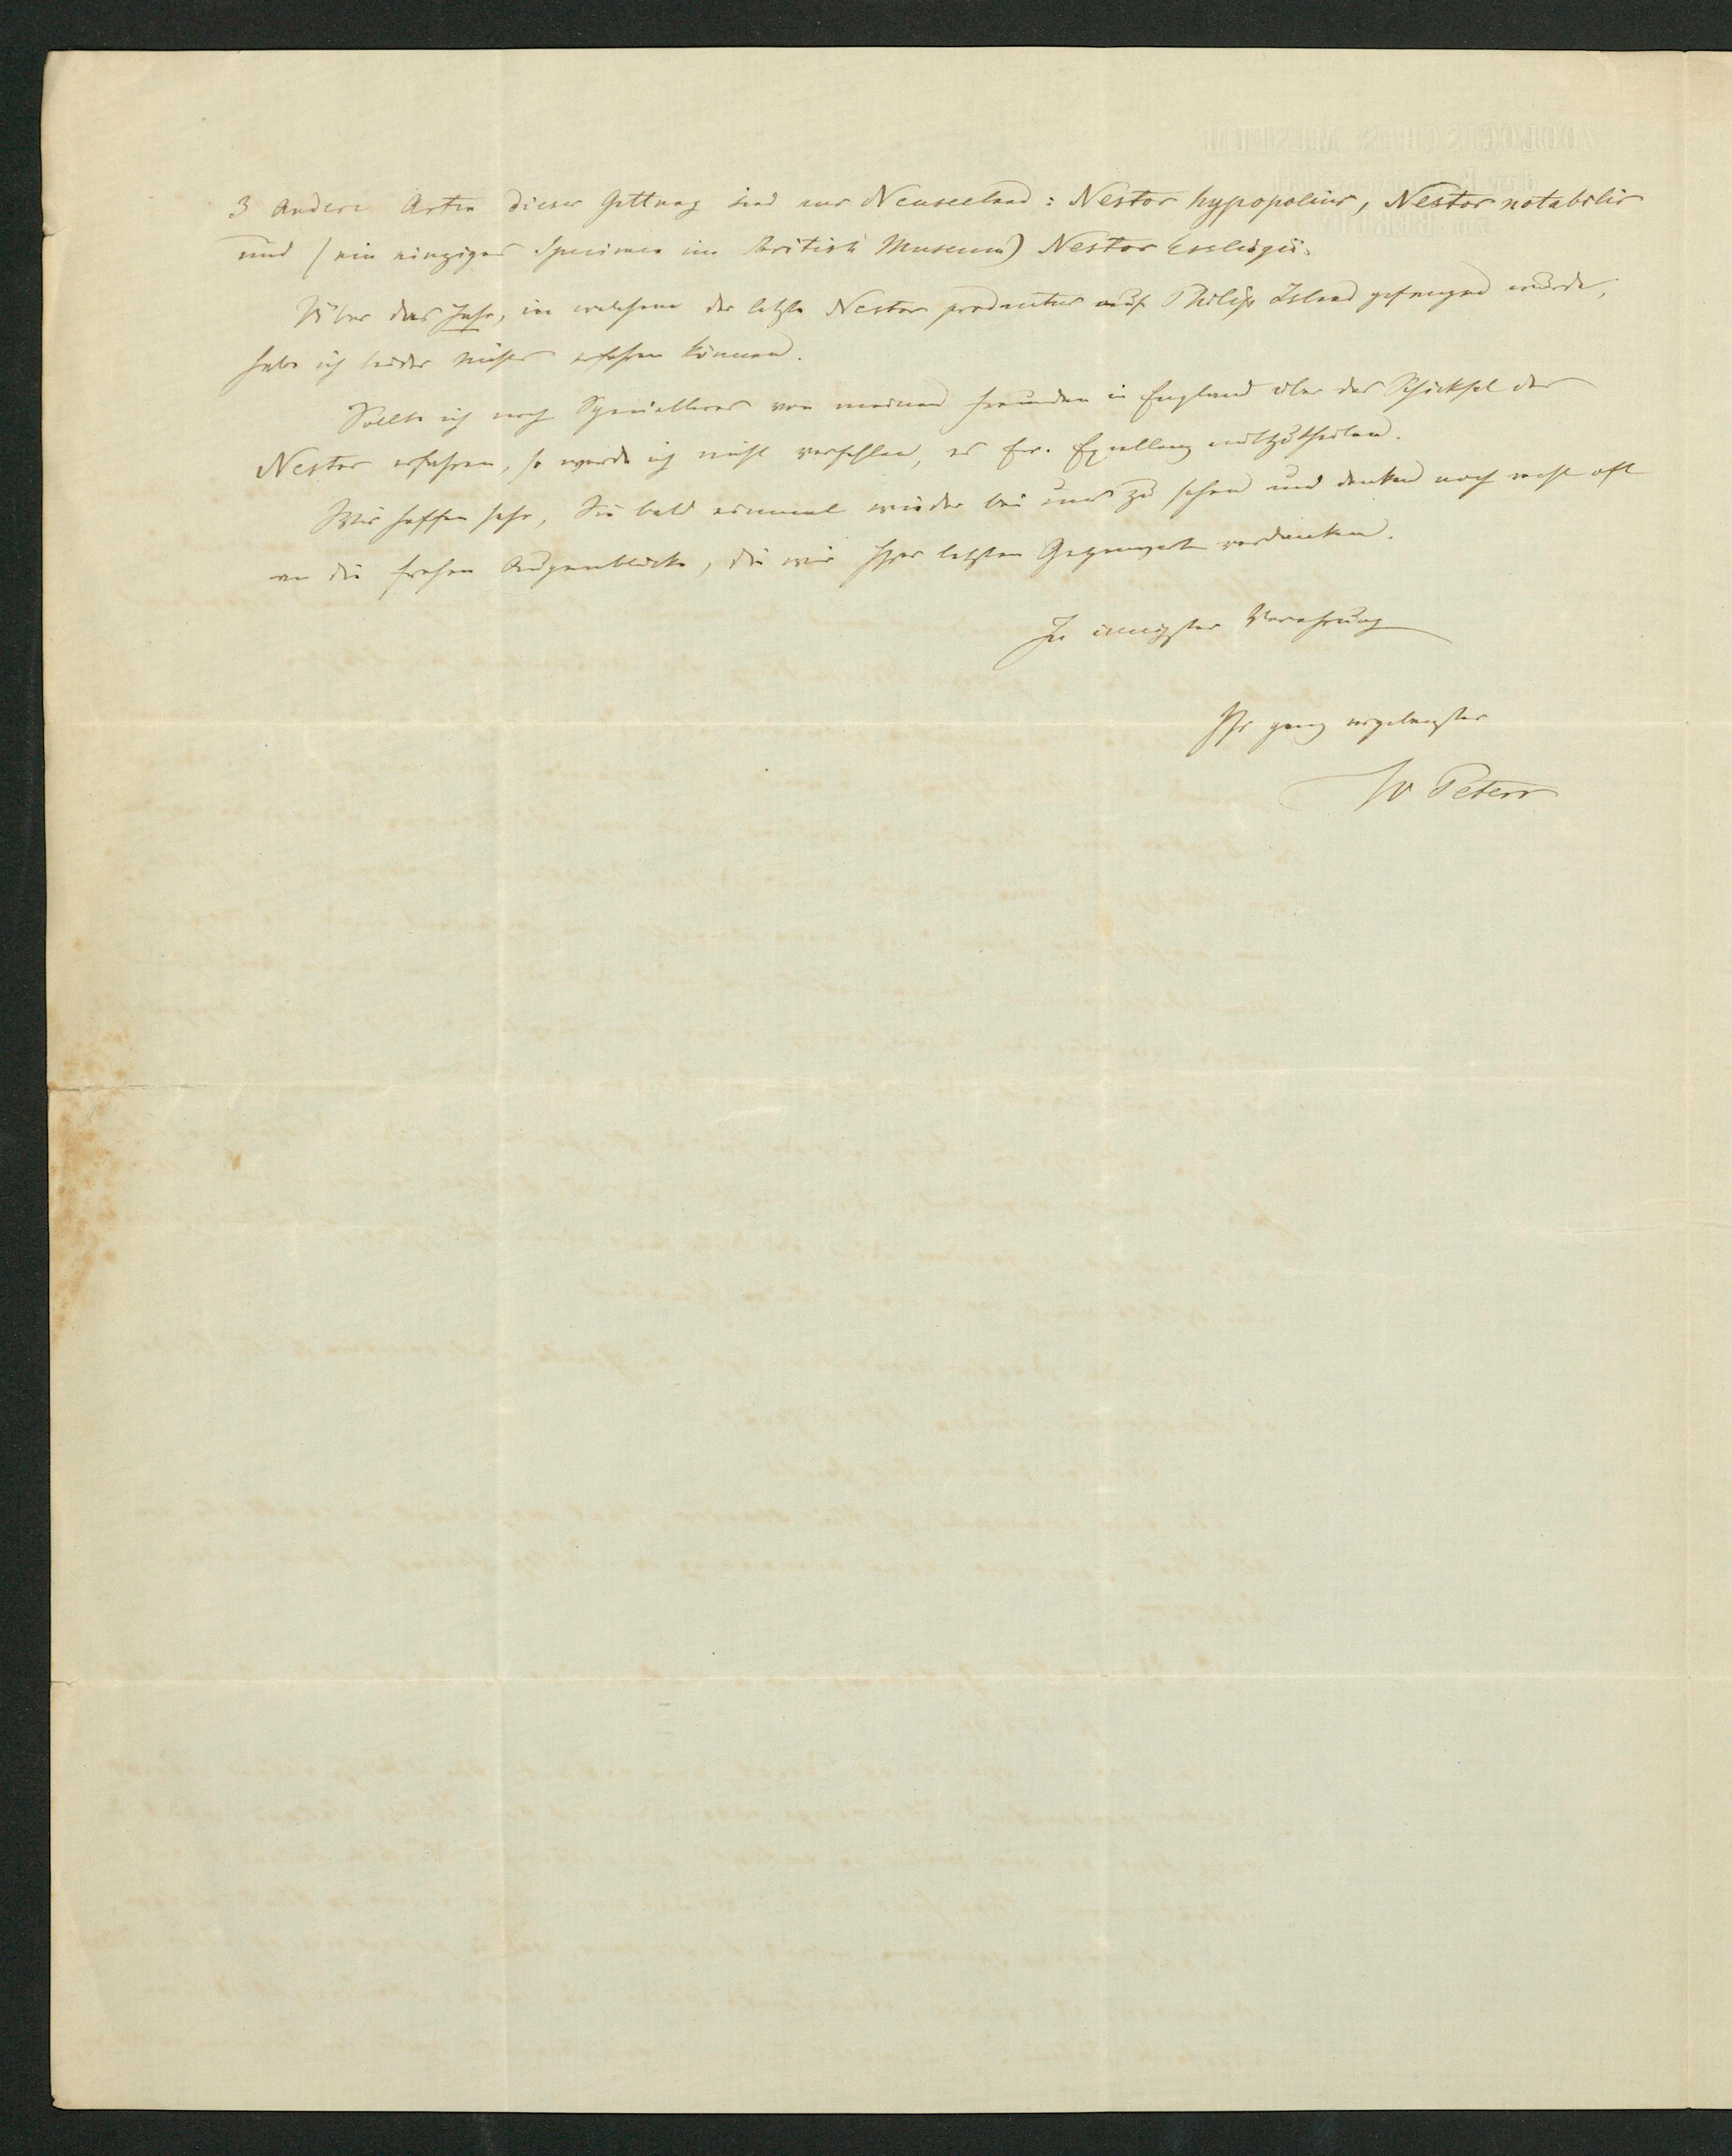 3 andere Arten dieser Gattung sind aus Neuseeland: Nestor hypopolius, Nestor notabilis
und (ein einziges Specimen im British Museum) Nestor Esslingii.
Über das Jahr, in welchem der letzte Nestor productus auf Philip Island gefangen wurde,
habe ich leider nichts erfahren können.
Sollte ich noch Specielleres von meinen Freunden in England über das Schicksal der
Nestor erfahren, so werde ich nicht verfehlen, es Ew. Excellenz mitzutheilen.
Wir hoffen sehr, Sie bald einmal wieder bei uns zu sehen und denken noch recht oft
an die frohen Augenblicke, die wir Ihrer letzten Gegenwart verdanken.
In innigster Verehrung
Ihr ganz ergebenster
W Peters
ZOOLOGISCHES MUSEUM